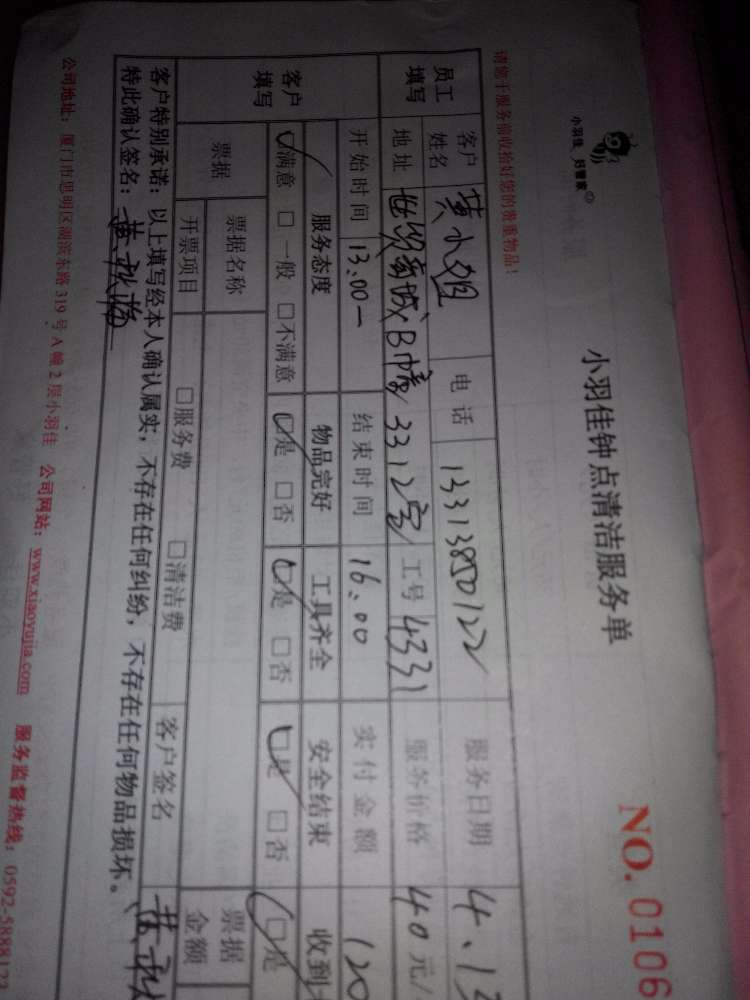 小羽佳 好管家
小羽佳钟点清洁服务单
NO. 0106
请您于服务前收拾好您的贵重物品！
员工填写 客户姓名 黄小姐 电话 13313850122 服务日期 4.13
地址 世贸商城B幢3312室 工号 4331 服务价格 40元/
开始时间 13:00一 结束时间 16:00 实付金额 120
客户填写 服务态度 物品完好 工具齐全 安全结束 收到
☑满意 □一般 □不满意 ☑是 □否 ☑是 □否 ☑是 □否 ☑是
票据 票据名称 票据金额
开票项目 □服务费 □清洁费 客户签名
客户特别承诺：以上填写经本人确认属实，不存在任何纠纷，不存在任何物品损坏。
特此确认签名：
公司地址：厦门市思明区湖滨东路319号A幢2层小羽佳 公司网站：www.xiaoyujia.com 服务监督热线：0592-5888123